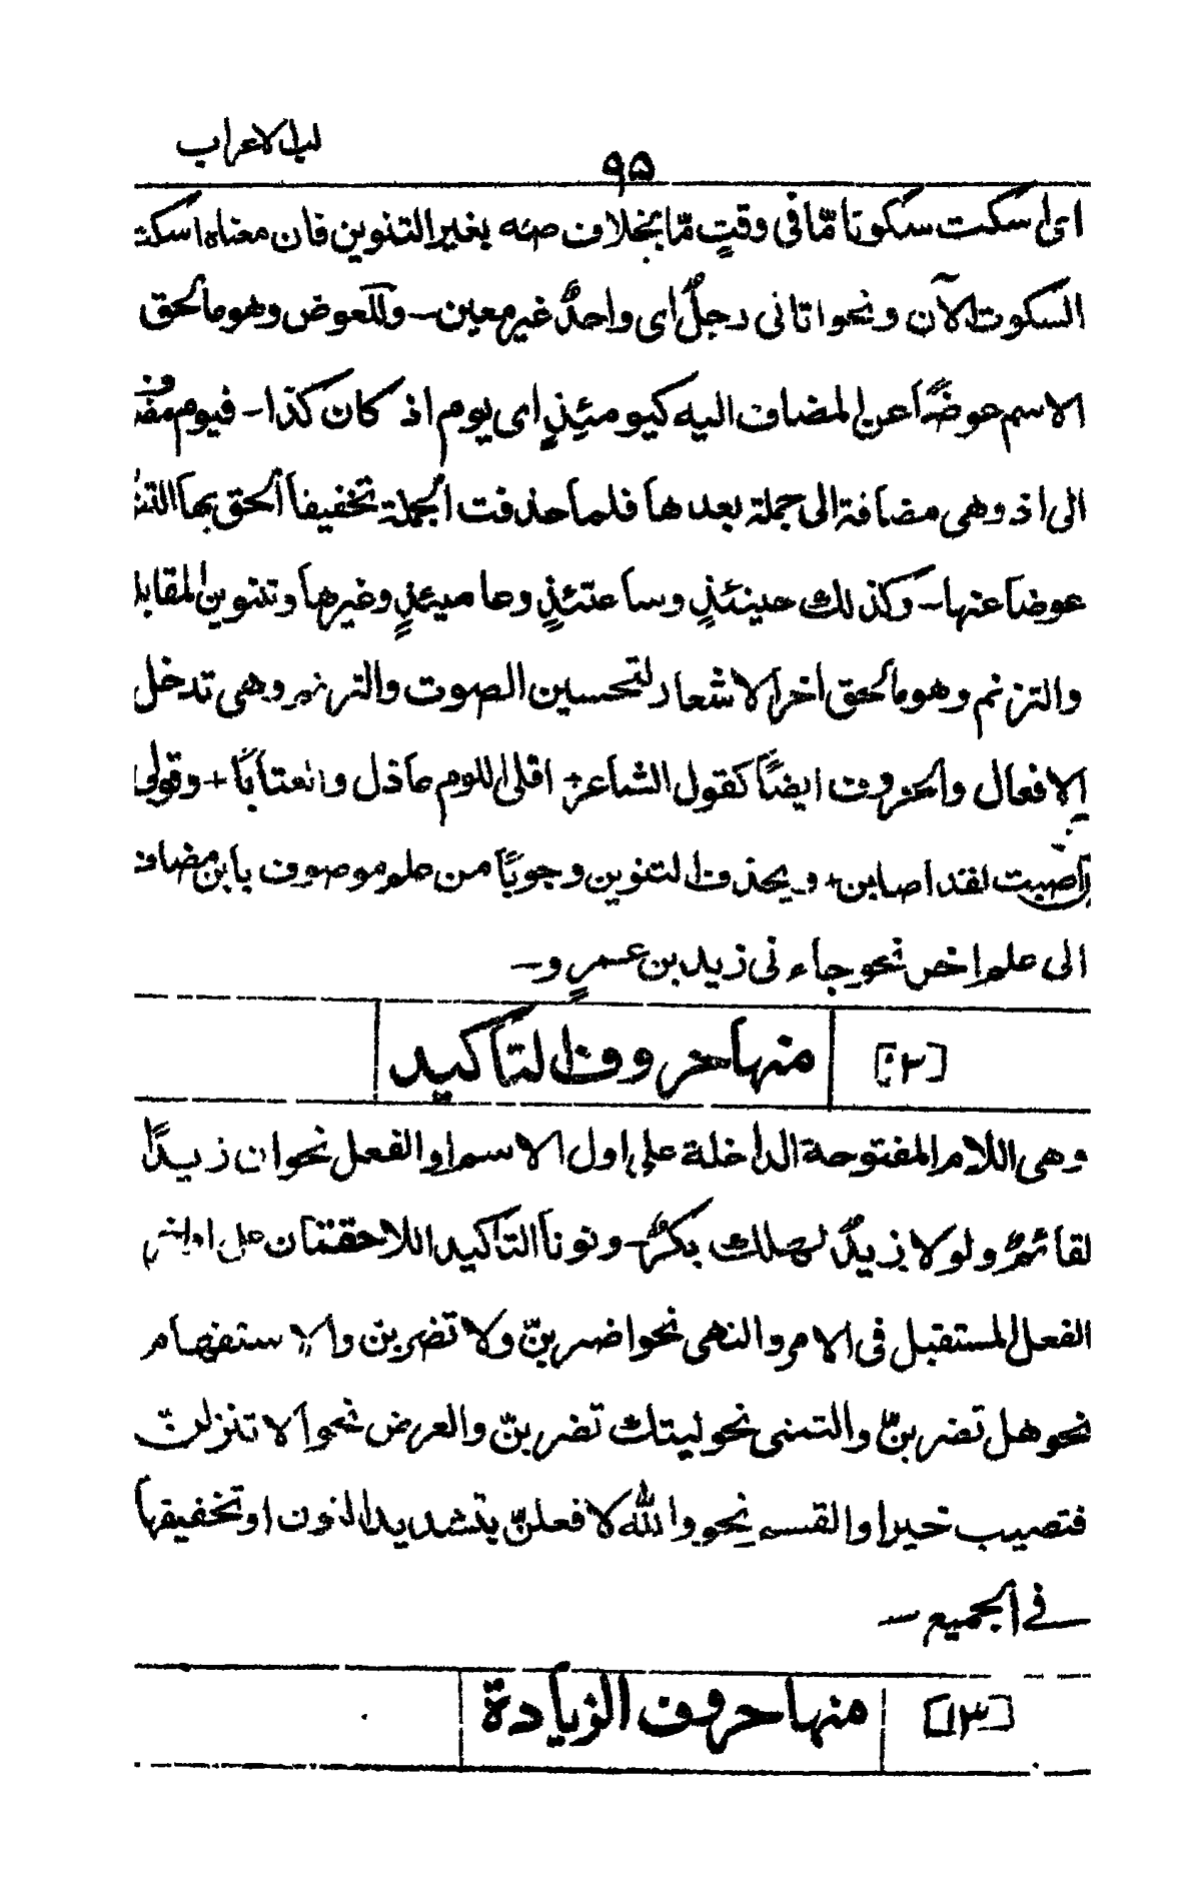 لباب الاعراب
٩٥
ای اسکت سکوتا مّا فی وقتٍ مّا بخلاف صه بغیر التنوین فان معناه اسکت
السکوت الآن ونحو اتانی رجلٌ ای واحدٌ غیر معین۔ وللعوض وهو ما لحق
الاسم عوضًا عن المضاف الیه کیومئذٍ ای یوم اذ کان کذا۔ فیوم مضف
الی اذ وهی مضافة الی جملة بعدها فلما حذفت الجملة تخفیفا الحق بها التنو
عوضا عنها۔ وکذلك حینئذٍ وساعتئذٍ وعامیئذٍ وغیرها وتنوین المقابلة
والترنم وهو ما لحق اخر الاشعار لتحسین الصوت والترنم وهی تدخل
الافعال والحروف ایضًا کقول الشاعر؛ اقلی اللوم عاذل والعتابًا + وقولی
ان اصبت لقد اصابن + ویحذف التنوین وجوبًا من علم موصوف بابن مضاف
الی علم اخر نحو جاءنی زید بن عمرٍو۔
[٣٠] منها حروف التاکید
وهی اللام المفتوحة الداخلة علی اول الاسم او الفعل نحو ان زیدًا
لقائمٌ ولولا زیدٌ لهلك بکرٌ۔ ونونا التاکید اللاحقتان علی اواخر
الفعل المستقبل فی الامر والنهی نحو اضربنّ ولا تضربن والاستفهام
نحو هل تضربنّ والتمنی نحو لیتك تضربنّ والعرض نحو الا تنزلنّ
فتصیب خیرا والقسم نحو والله لافعلنّ بتشدید النون او تخفیفها
فی الجمیع۔
[٣١] منها حروف الزیادة